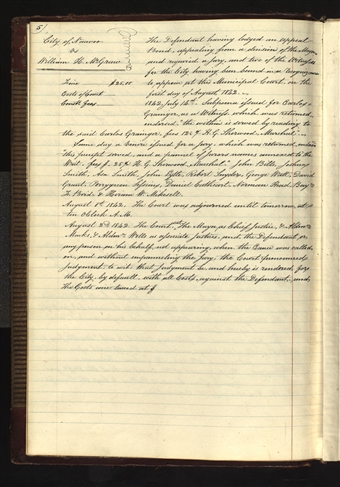 5
City of Nauvoo
vs
William H. McGraw
Fine $25,00
Costs of Court
Const. fees
The Defendant having lodged an appeal
Bond, appealing from a decision of the Mayor,
and required a Jury, and two of the Witnesses
for the City having been bound in a recognizance
to appear at this Municipal Court, on the
first day of August, 1842.
1842, July 14th. Subpoena issued for Carlos
Granger, as a Witness which was returned,
endorsed "the within is served by reading to
the said Carlos Granger, fees 12 H. G. Sherwood, Marshal."
Same day a Venire issued for a Jury, which was returned,
this precept served, and a pannel of Jurors names annexed to the
Writ, fees $ .25 H. G. Sherwood, Marshal." John Bills,
Smith, Asa Smith, John Lytle, Robert Snyder, George Watt, David
Grant, David Cathcart, Norman
&
August 1st 1842. The Court was adjourned until tomorrow, at
ten o'clock A. M.
August 2nd 1842. The Court met, The Mayor as Chief Justice, & Aldermen
Marks, & Aldn. Wells as associate Justices, and the Defendant, or
any person in his behalf, not appearing when the Cause was called
on, and without empannelling the Jury; the Court pronounced
judgment to wit: that Judgment be and hereby is rendered for
the City by default with all Costs against the Defendant, and
the Costs were taxed at $